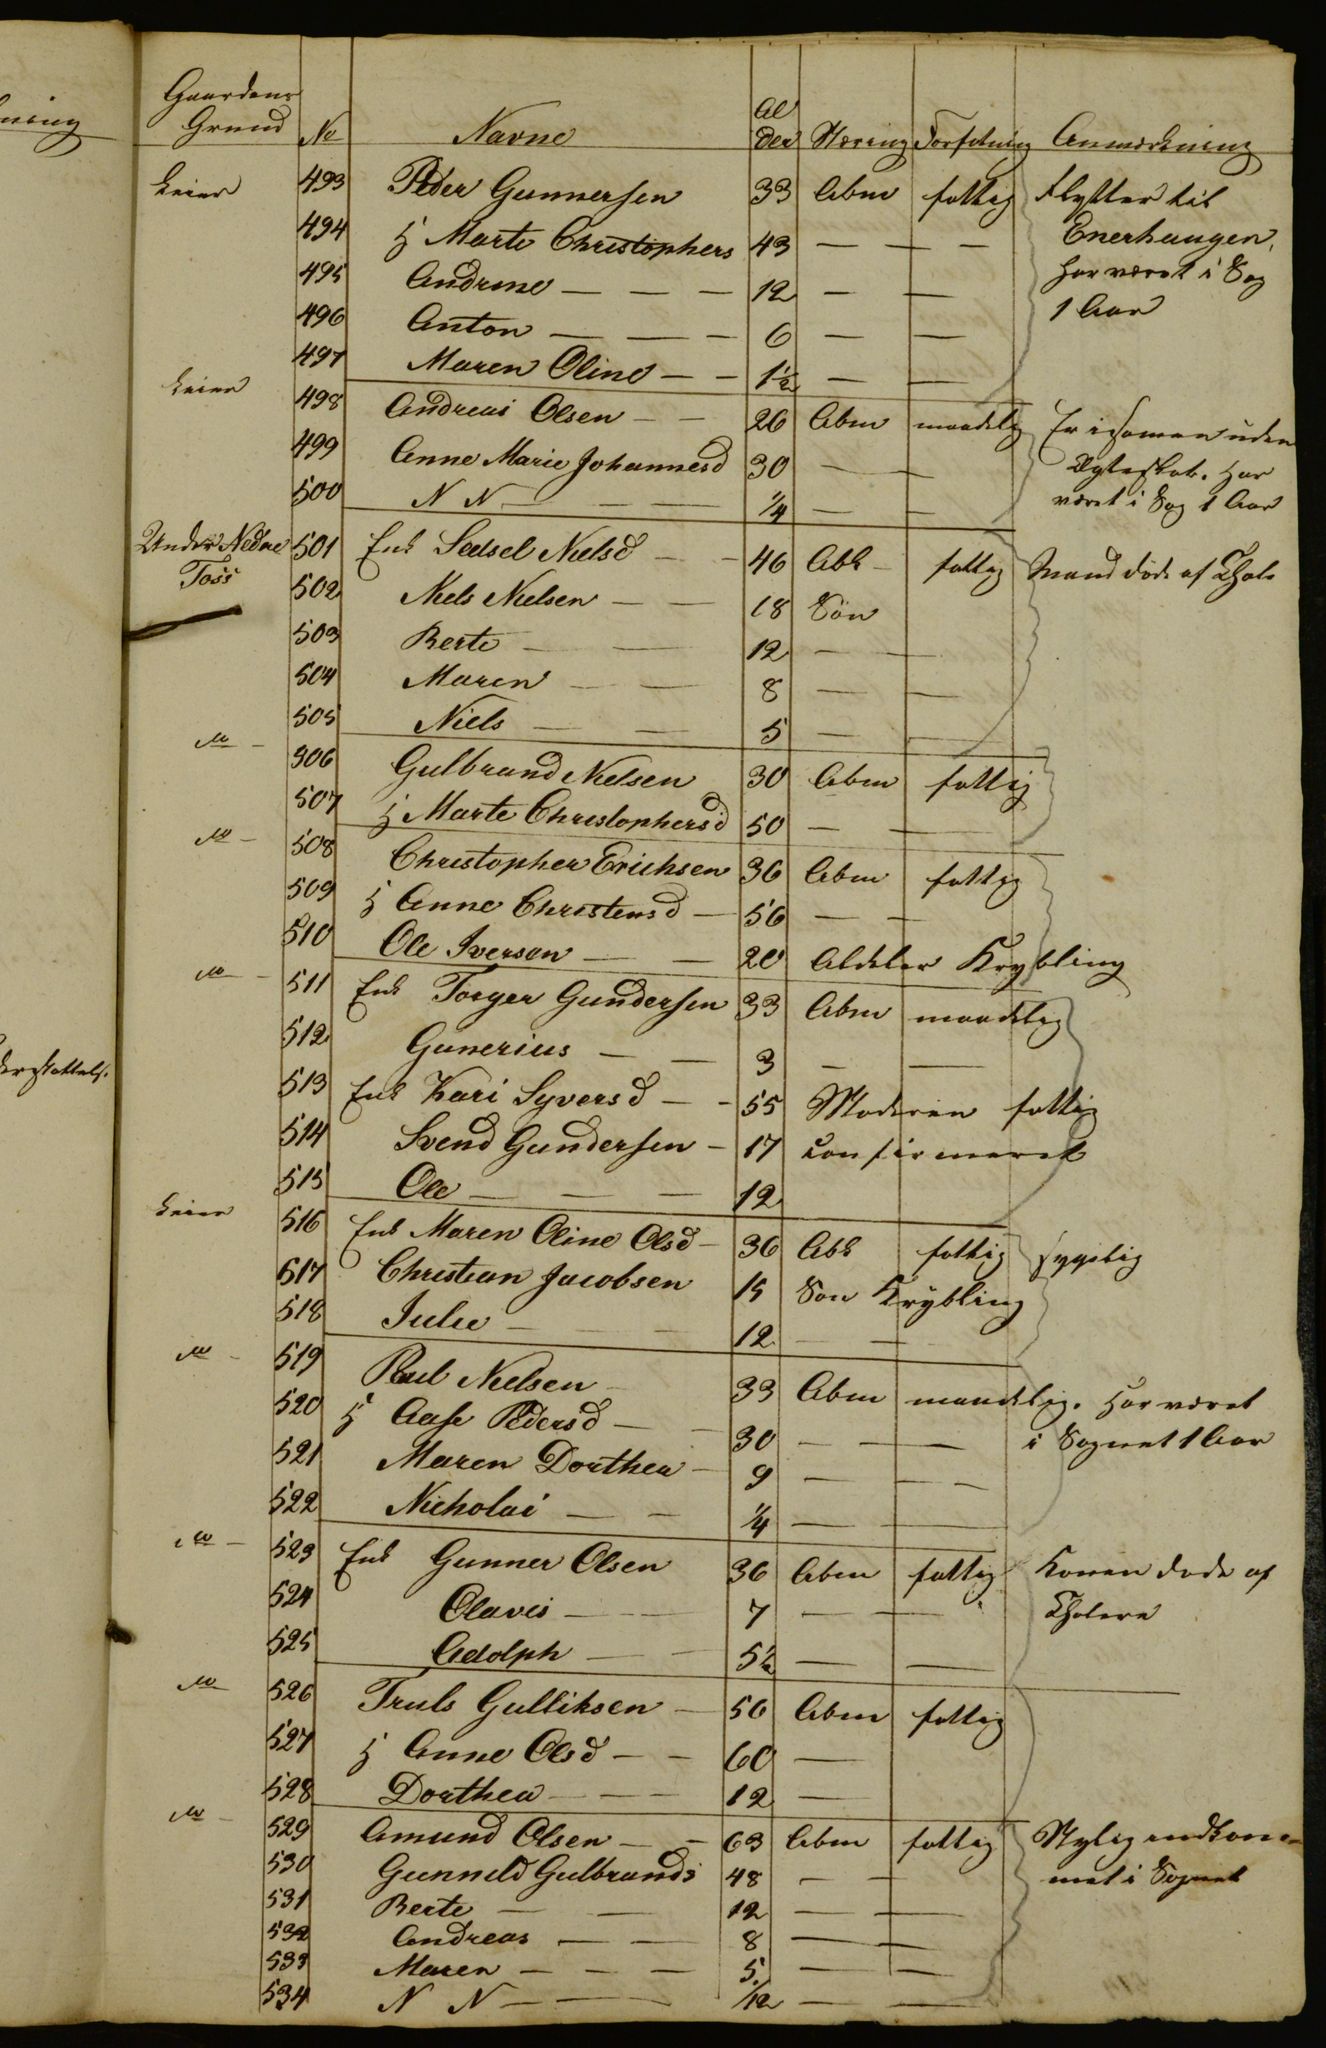 Gaardens
Grund No Navne Alder Næring Forfatning Anmærkning
Leier 493 Peder Gunnersen 33 Abm fattig Flytter til
494 H Marte Christophers 43 — — — Enerhaugen,
495 Andrine — — — 12 — — har været i Sog
496 Anton — — — 6 — — 1 Aar
497 Maren Oline — — 1½ — —
Leier 498 Andreas Olsen — — 26 Abm maadelig Er isammen uden
499 Anne Marie Johannesd 30 — — Ægteskab. Har
500 N N — — — ¼ — — været i Sog 1 Aar
Under Nedre 501 Enk Sedsel Nielsd — — 46 Abk — fattig Mand døde af Chole
Toss 502 Niels Nielsen — — 18 Søn
503 Berte — — 12 — —
504 Maren — — 8 — —
505 Niels — — 5 — —
" — 506 Gulbrand Nielsen 30 Abm fattig
507 H Marte Christophersd 50 — —
" — 508 Christopher Erichsen 36 Abm fattig
509 H Anne Christensd — 56 — —
510 Ole Iversen — — 20 Aldeles Krybling
" — 511 Enk Torger Gundersen 33 Abm maadelig
512 Gunerius — — 3 — —
513 Enk Kari Syversd — — 55 Moderen fattig
514 Svend Gundersen — 17 confirmeret
515 Ole — — — 12
Leier 516 Enk Maren Oline Olsd — 36 Abk fattig sygelig
517 Christian Jacobsen 15 Søn Krybling
518 Julie — — — 12 — —
" — 519 Poul Nielsen — 33 Abm maadelig. Har været
520 H Aase Pedersd — — 30 — — i Sognet 1 Aar
521 Maren Dorthea — 9 — — —
522 Nicholai — — ¼ — —
" — 523 Enk Gunner Olsen 36 Abm fattig Konen døde af
524 Olavis — — 7 — — Cholera
525 Adolph — — 5½ — —
" — 526 Truls Gulliksen — 56 Abm fattig
527 H Anne Olsd — — 60 —
528 Dorthea — — — 12 —
" — 529 Amund Olsen — — 63 Abm fattig Nylig indkom-
530 Gunnild Gulbrands 48 — — met i Sognet
531 Berte — — 12 — —
532 Andreas — — 8 — —
533 Maren — — — 5 — —
534 N N — — — 1/12 — —